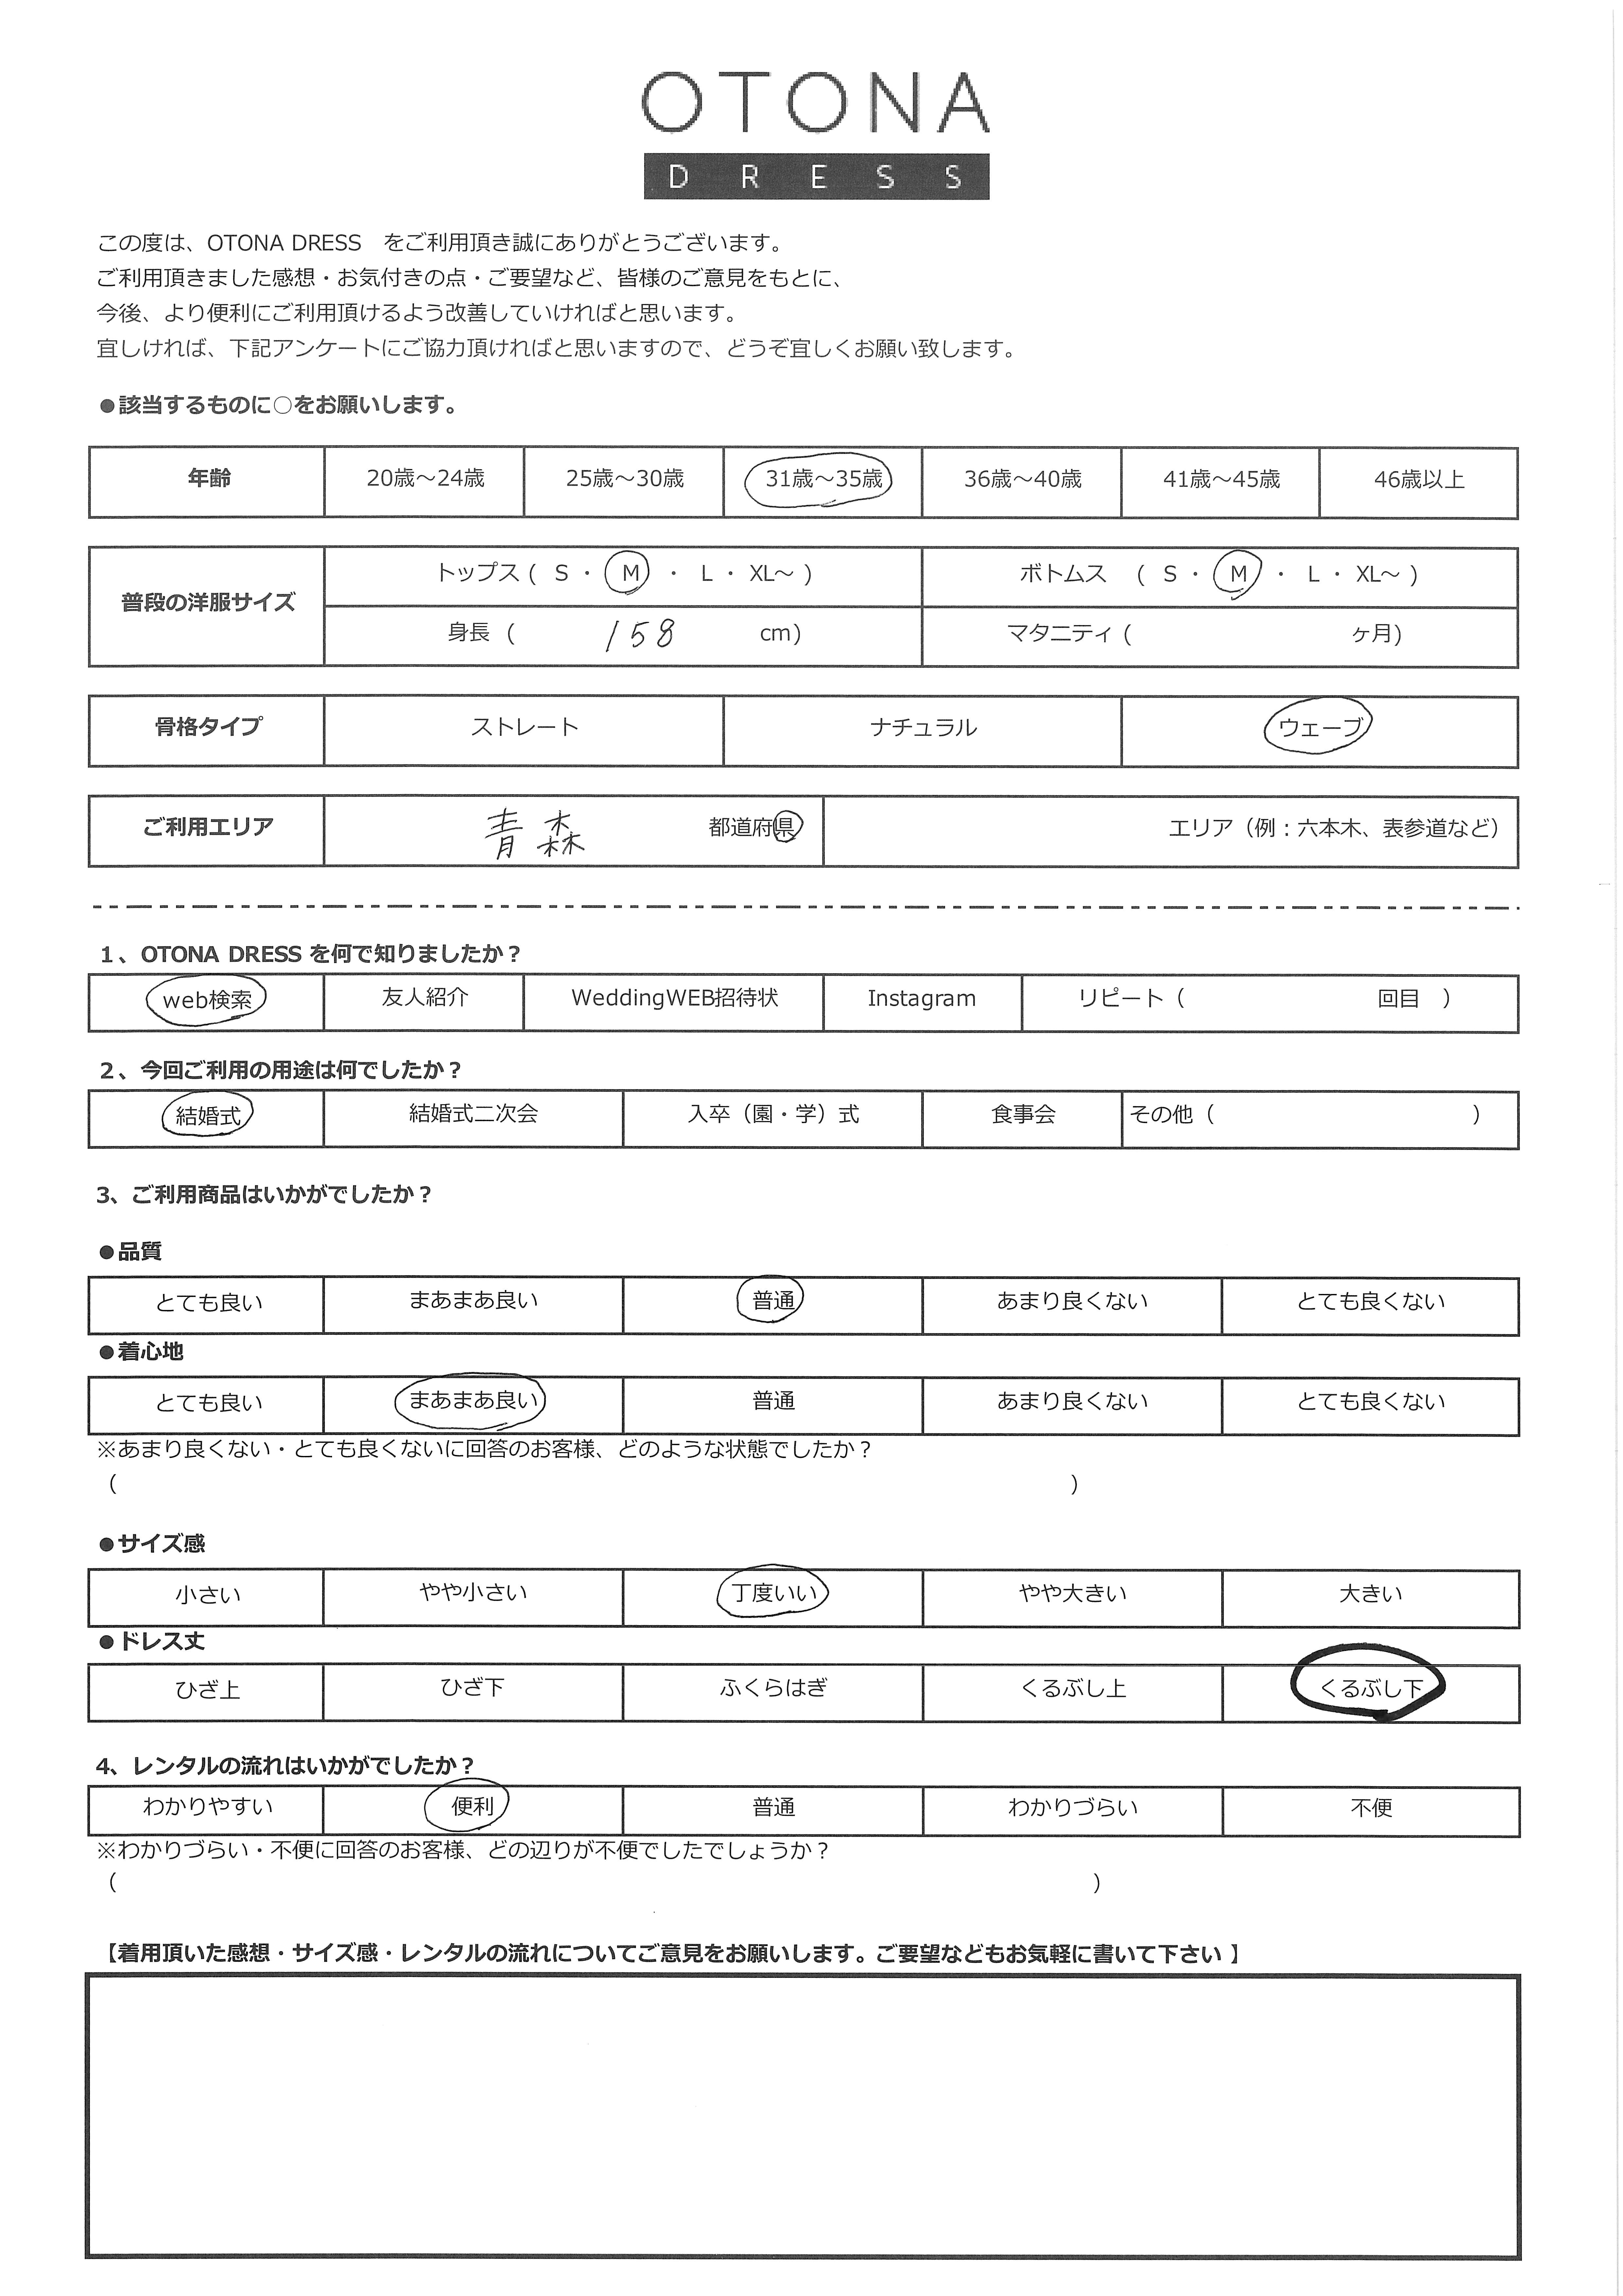 OTONA
DRESS
この度は、OTONA DRESS　をご利用頂き誠にありがとうございます。
ご利用頂きました感想・お気付きの点・ご要望など、皆様のご意見をもとに、
今後、より便利にご利用頂けるよう改善していければと思います。
宜しければ、下記アンケートにご協力頂ければと思いますので、どうぞ宜しくお願い致します。
●該当するものに○をお願いします。
年齢 20歳～24歳 25歳～30歳 31歳～35歳 36歳～40歳 41歳～45歳 46歳以上
普段の洋服サイズ トップス ( S ・ M ・ L ・ XL～ ) ボトムス ( S ・ M ・ L ・ XL～ )
身長 ( 158 cm) マタニティ ( ヶ月)
骨格タイプ ストレート ナチュラル ウェーブ
ご利用エリア 青森 都道府県 エリア（例：六本木、表参道など）
1、OTONA DRESS を何で知りましたか？
web検索 友人紹介 WeddingWEB招待状 Instagram リピート（ 回目 ）
2、今回ご利用の用途は何でしたか？
結婚式 結婚式二次会 入卒（園・学）式 食事会 その他（ ）
3、ご利用商品はいかがでしたか？
●品質
とても良い まあまあ良い 普通 あまり良くない とても良くない
●着心地
とても良い まあまあ良い 普通 あまり良くない とても良くない
※あまり良くない・とても良くないに回答のお客様、どのような状態でしたか？
（ ）
●サイズ感
小さい やや小さい 丁度いい やや大きい 大きい
●ドレス丈
ひざ上 ひざ下 ふくらはぎ くるぶし上 くるぶし下
4、レンタルの流れはいかがでしたか？
わかりやすい 便利 普通 わかりづらい 不便
※わかりづらい・不便に回答のお客様、どの辺りが不便でしたでしょうか？
（ ）
【着用頂いた感想・サイズ感・レンタルの流れについてご意見をお願いします。ご要望などもお気軽に書いて下さい 】